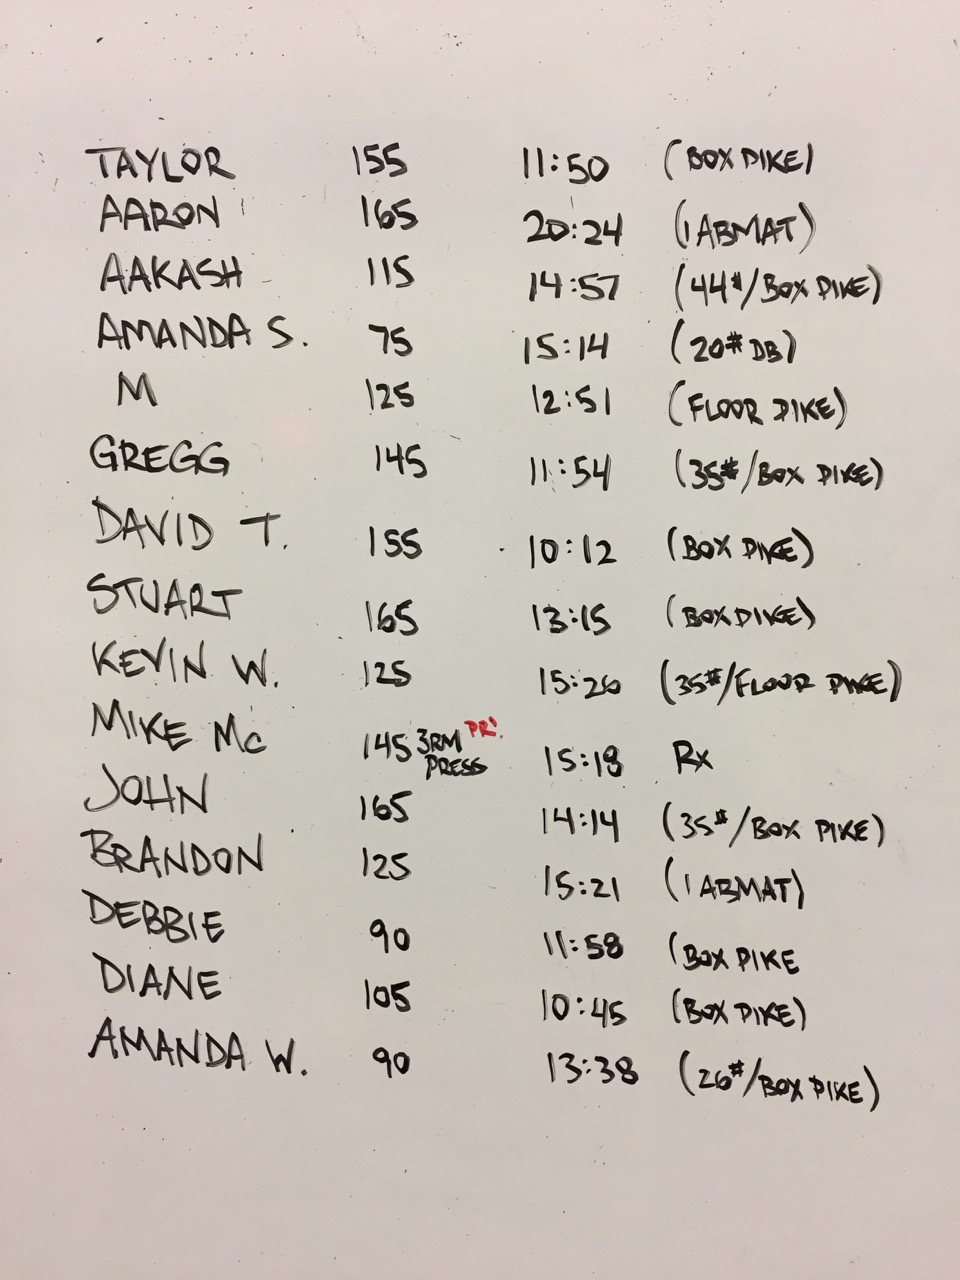 TAYLOR 155 11:50 (BOX PIKE)
AARON 165 20:24 (1 ABMAT)
AAKASH 115 14:57 (44#/BOX PIKE)
AMANDA S. 75 15:14 (20# DB)
M 125 12:51 (FLOOR PIKE)
GREGG 145 11:54 (35#/BOX PIKE)
DAVID T. 155 10:12 (BOX PIKE)
STUART 165 13:15 (BOX PIKE)
KEVIN W. 125 15:26 (35#/FLOOR PIKE)
MIKE Mc 145 3RM PR!
PRESS 15:18 Rx
JOHN 165 14:14 (35#/BOX PIKE)
BRANDON 125 15:21 (1 ABMAT)
DEBBIE 90 11:58 (BOX PIKE
DIANE 105 10:45 (BOX PIKE)
AMANDA W. 90 13:38 (26#/BOX PIKE)